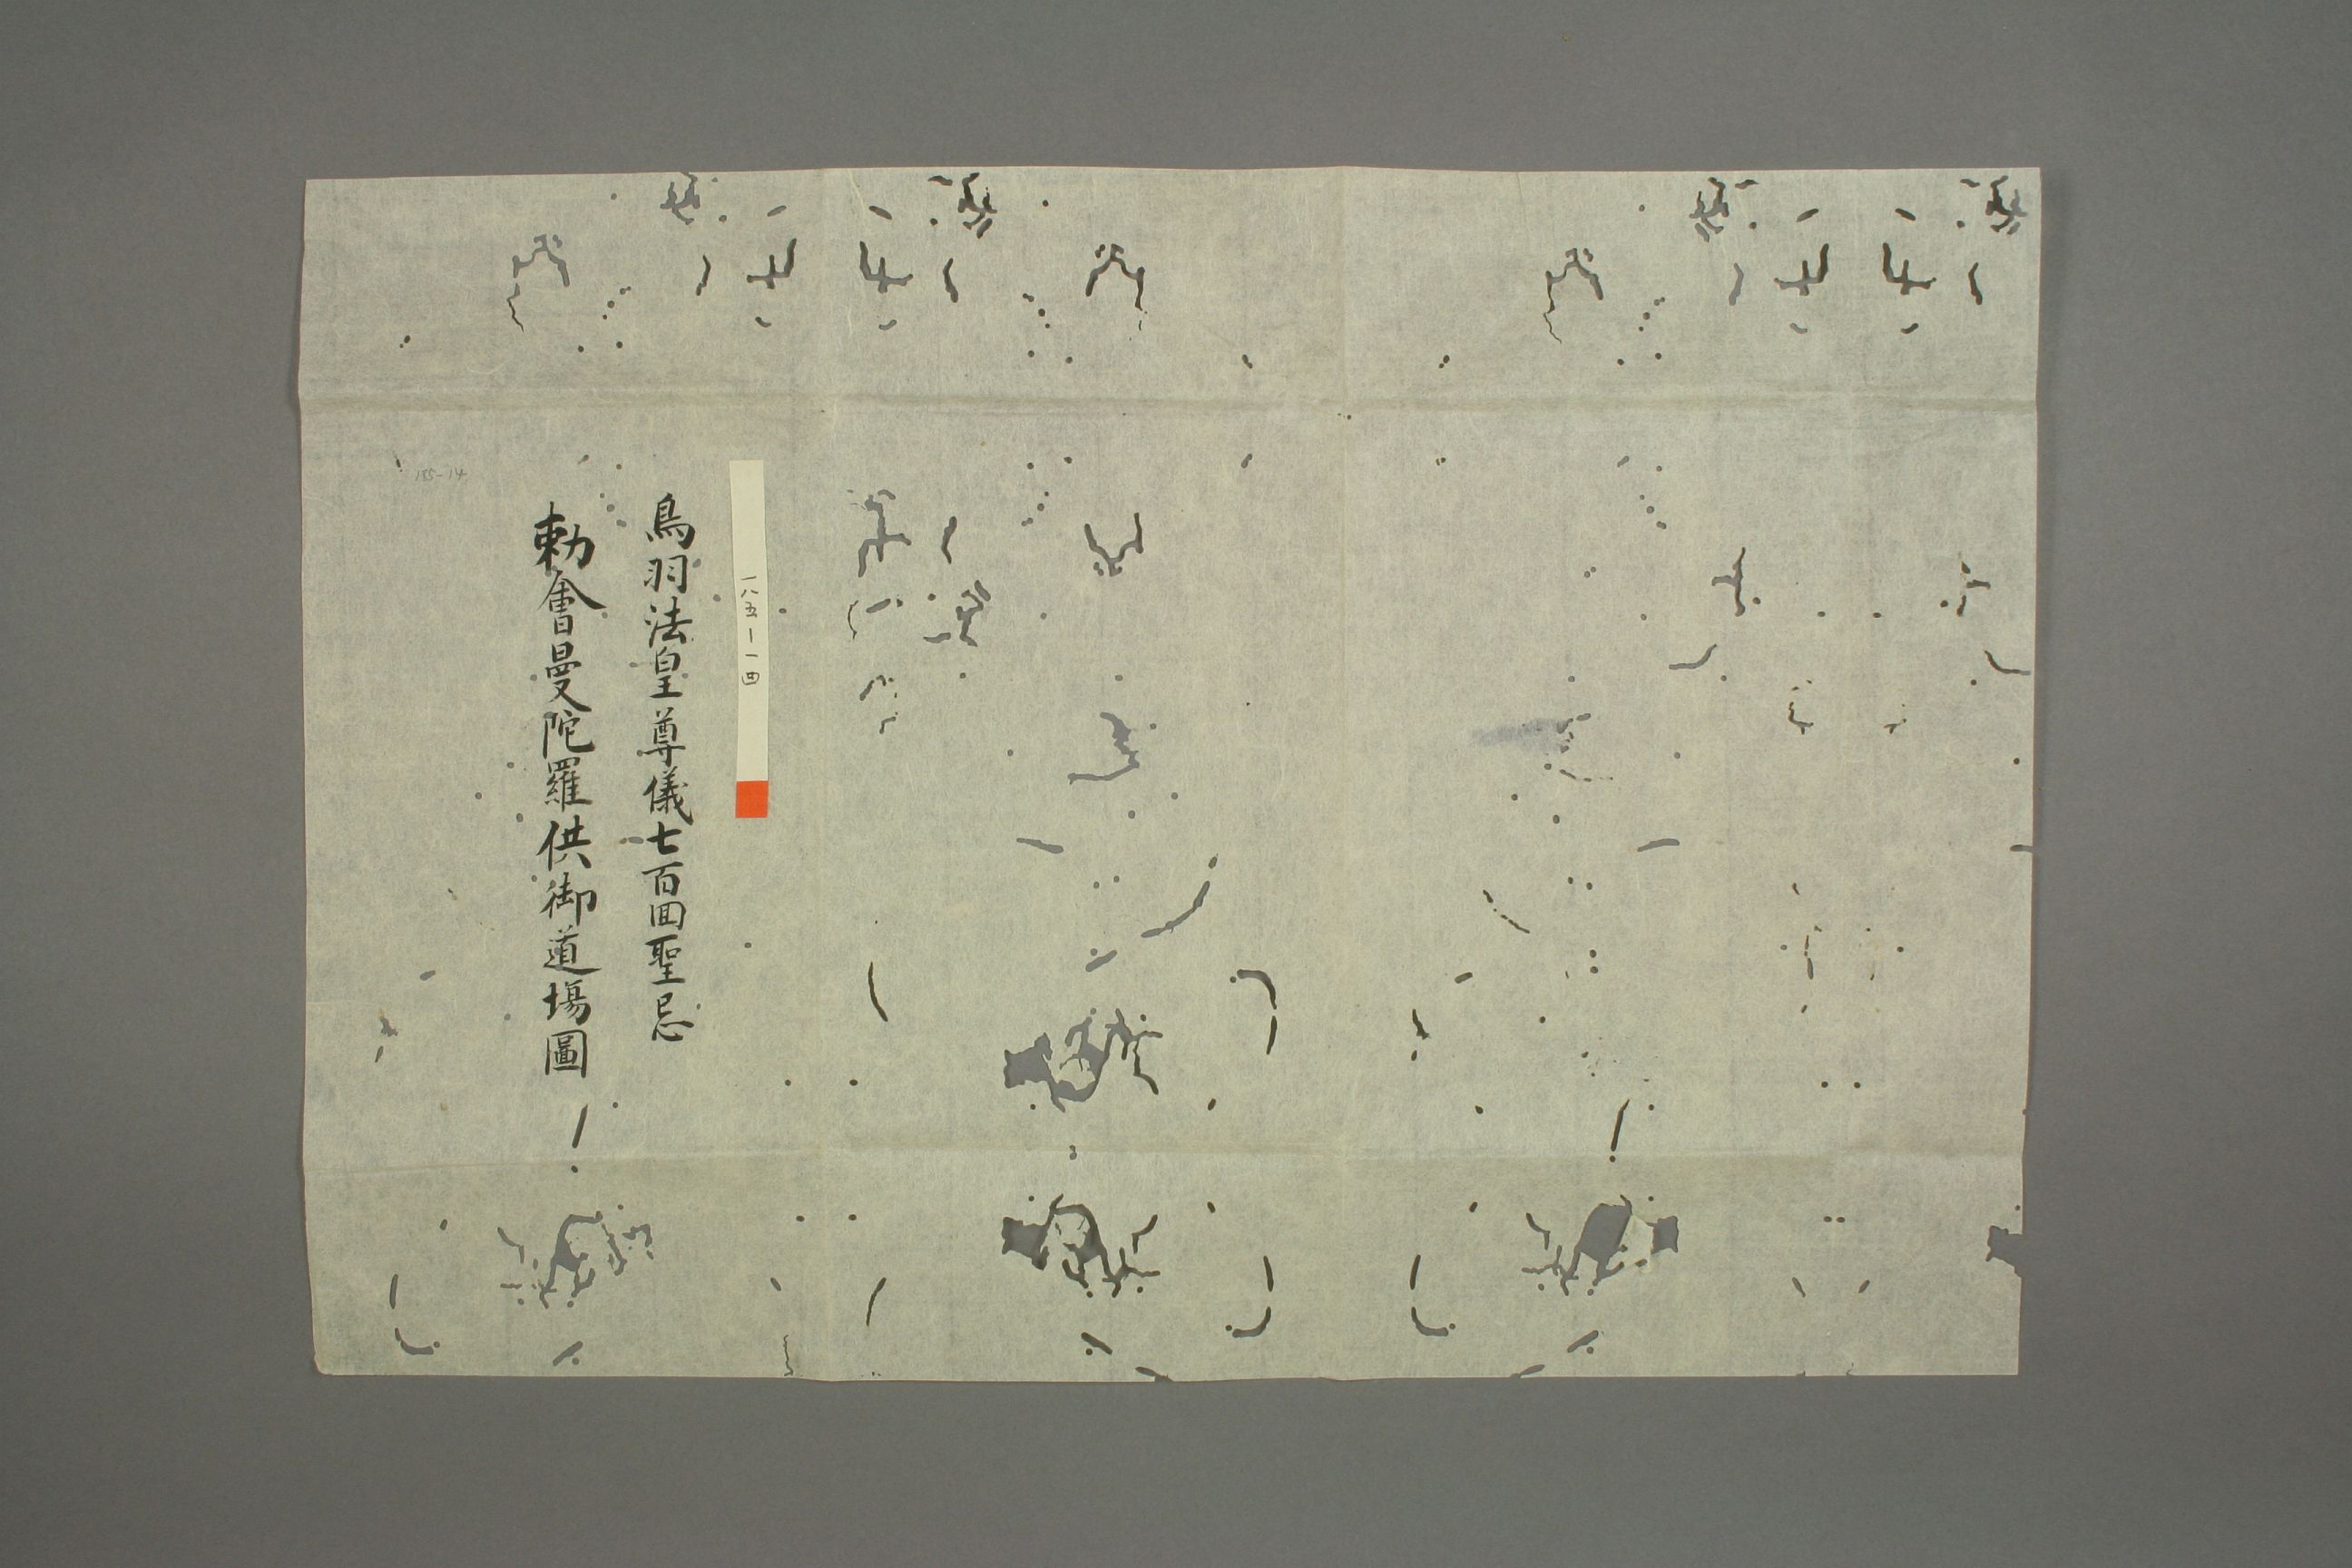 一八五ー一四
鳥羽法皇尊儀七百囬聖忌
勅會曼陀羅供御道場圖
185-14